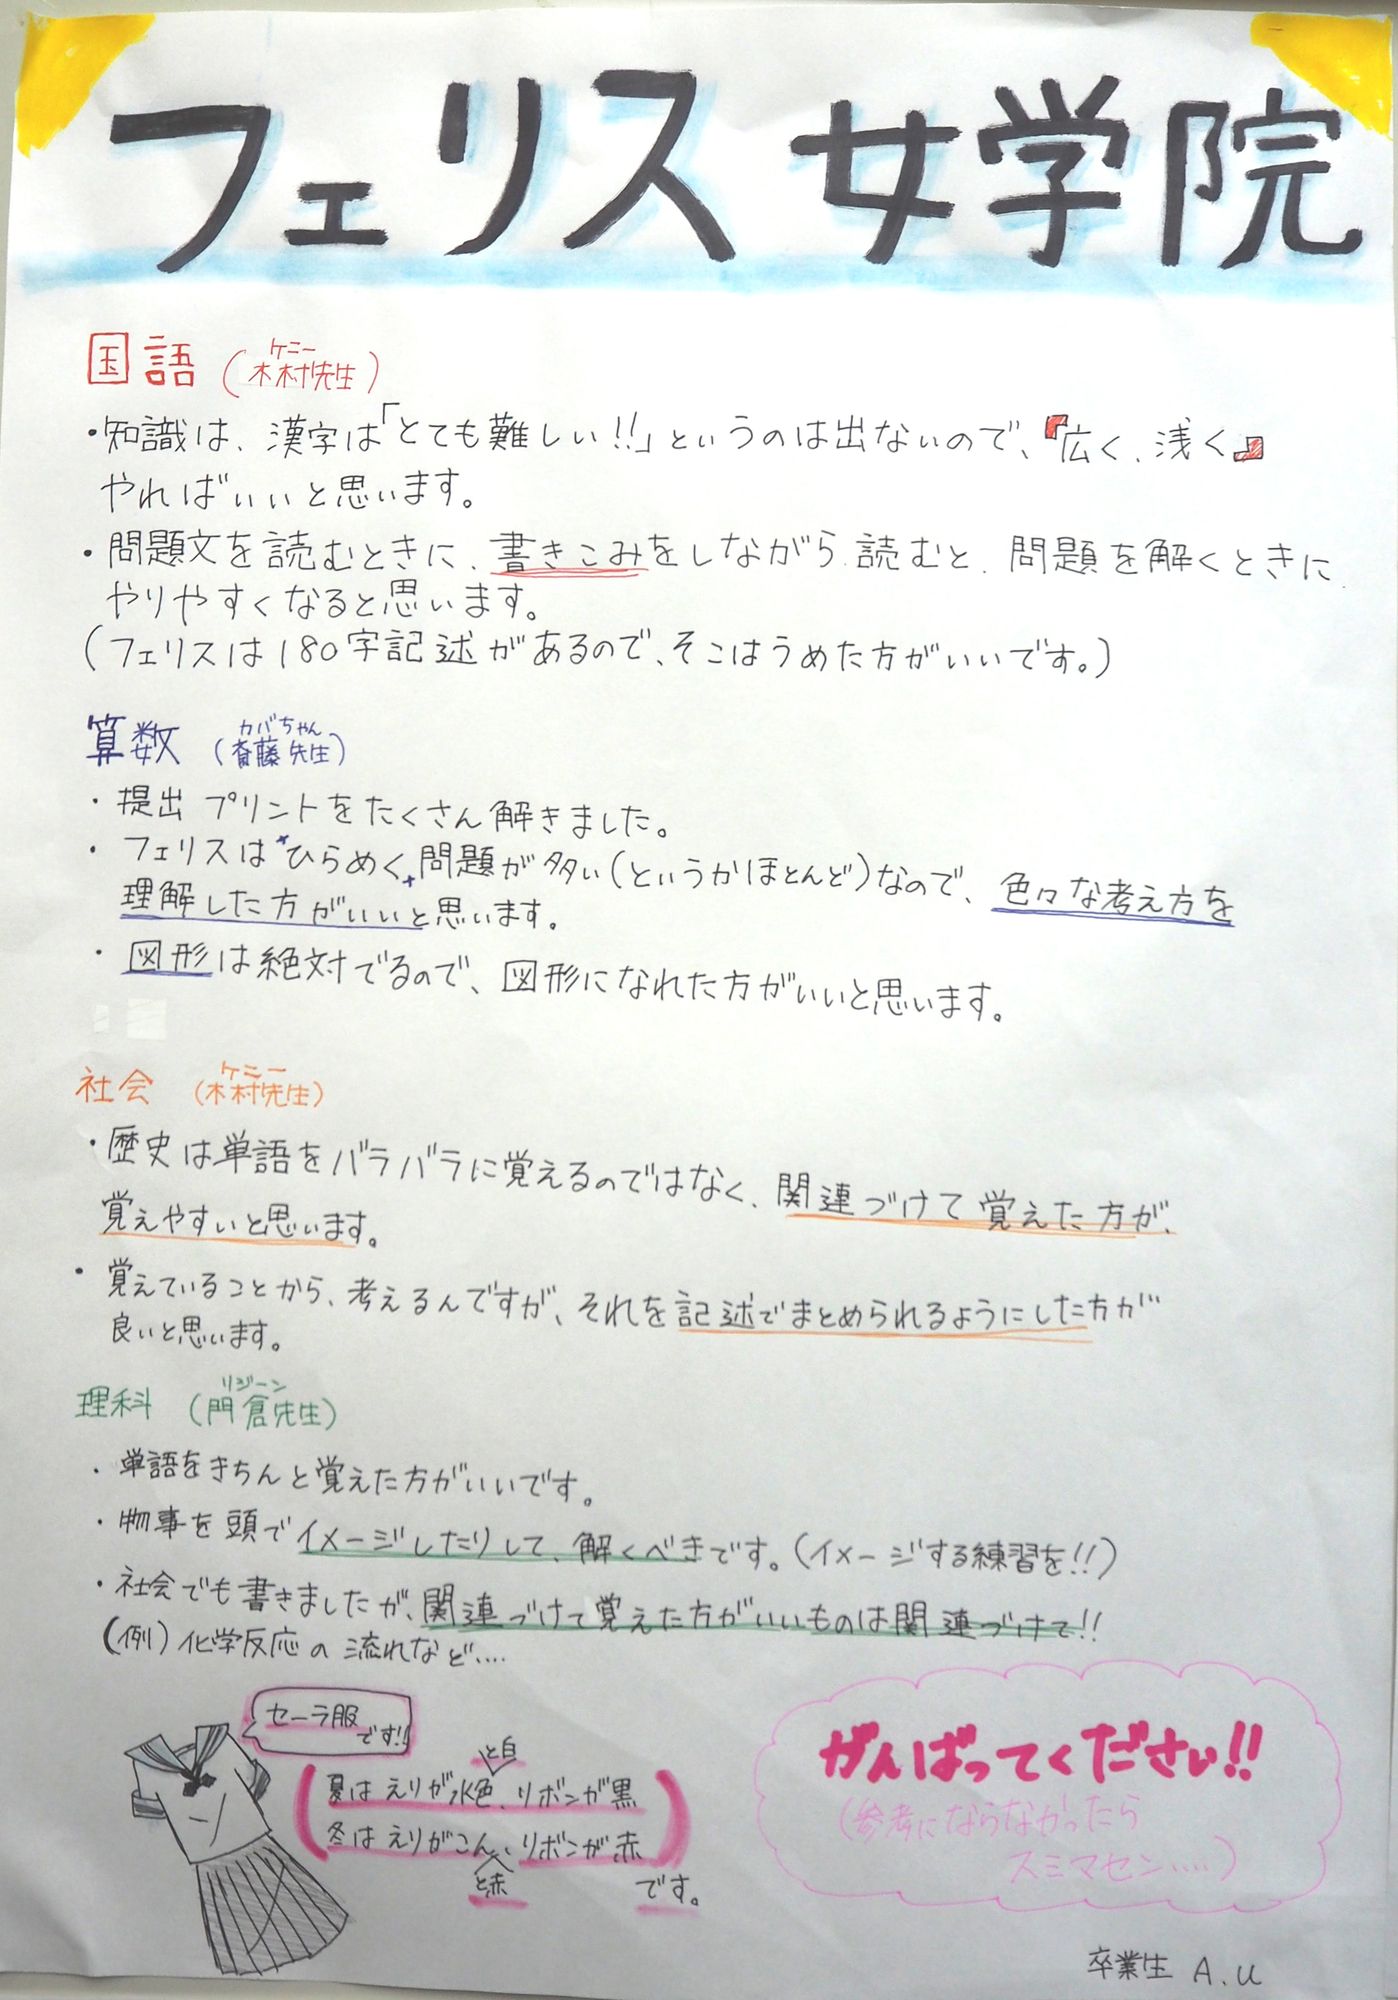 フェリス女学院
国語 (木村先生)
ケニー
・知識は、漢字は「とても難しい!!」というのは出ないので、『広く、浅く』
やればいいと思います。
・問題文を読むときに、書きこみをしながら読むと、問題を解くときに
やりやすくなると思います。
(フェリスは180字記述があるので、そこはうめた方がいいです。)
カバちゃん
算数 (斎藤先生)
・提出プリントをたくさん解きました。
・フェリスはひらめく問題が多い(というかほとんど)なので、色々な考え方を
理解した方がいいと思います。
・図形は絶対でるので、図形になれた方がいいと思います。
ケニー
社会 (木村先生)
・歴史は単語をバラバラに覚えるのではなく、関連づけて覚えた方が、
覚えやすいと思います。
・覚えていることから、考えるんですが、それを記述でまとめられるようにした方が
良いと思います。
リジーン
理科 (門倉先生)
・単語をきちんと覚えた方がいいです。
・物事を頭でイメージしたりして、解くべきです。(イメージする練習を!!)
・社会でも書きましたが、関連づけて覚えた方がいいものは関連づけて!!
(例)化学反応の流れなど....
セーラ服
です!!
と白
夏はえりが水色、リボンが黒
冬はえりがこん、リボンが赤
と赤
です。
がんばってください!!
(参考にならなかったら
スミマセン.....)
卒業生 A.U